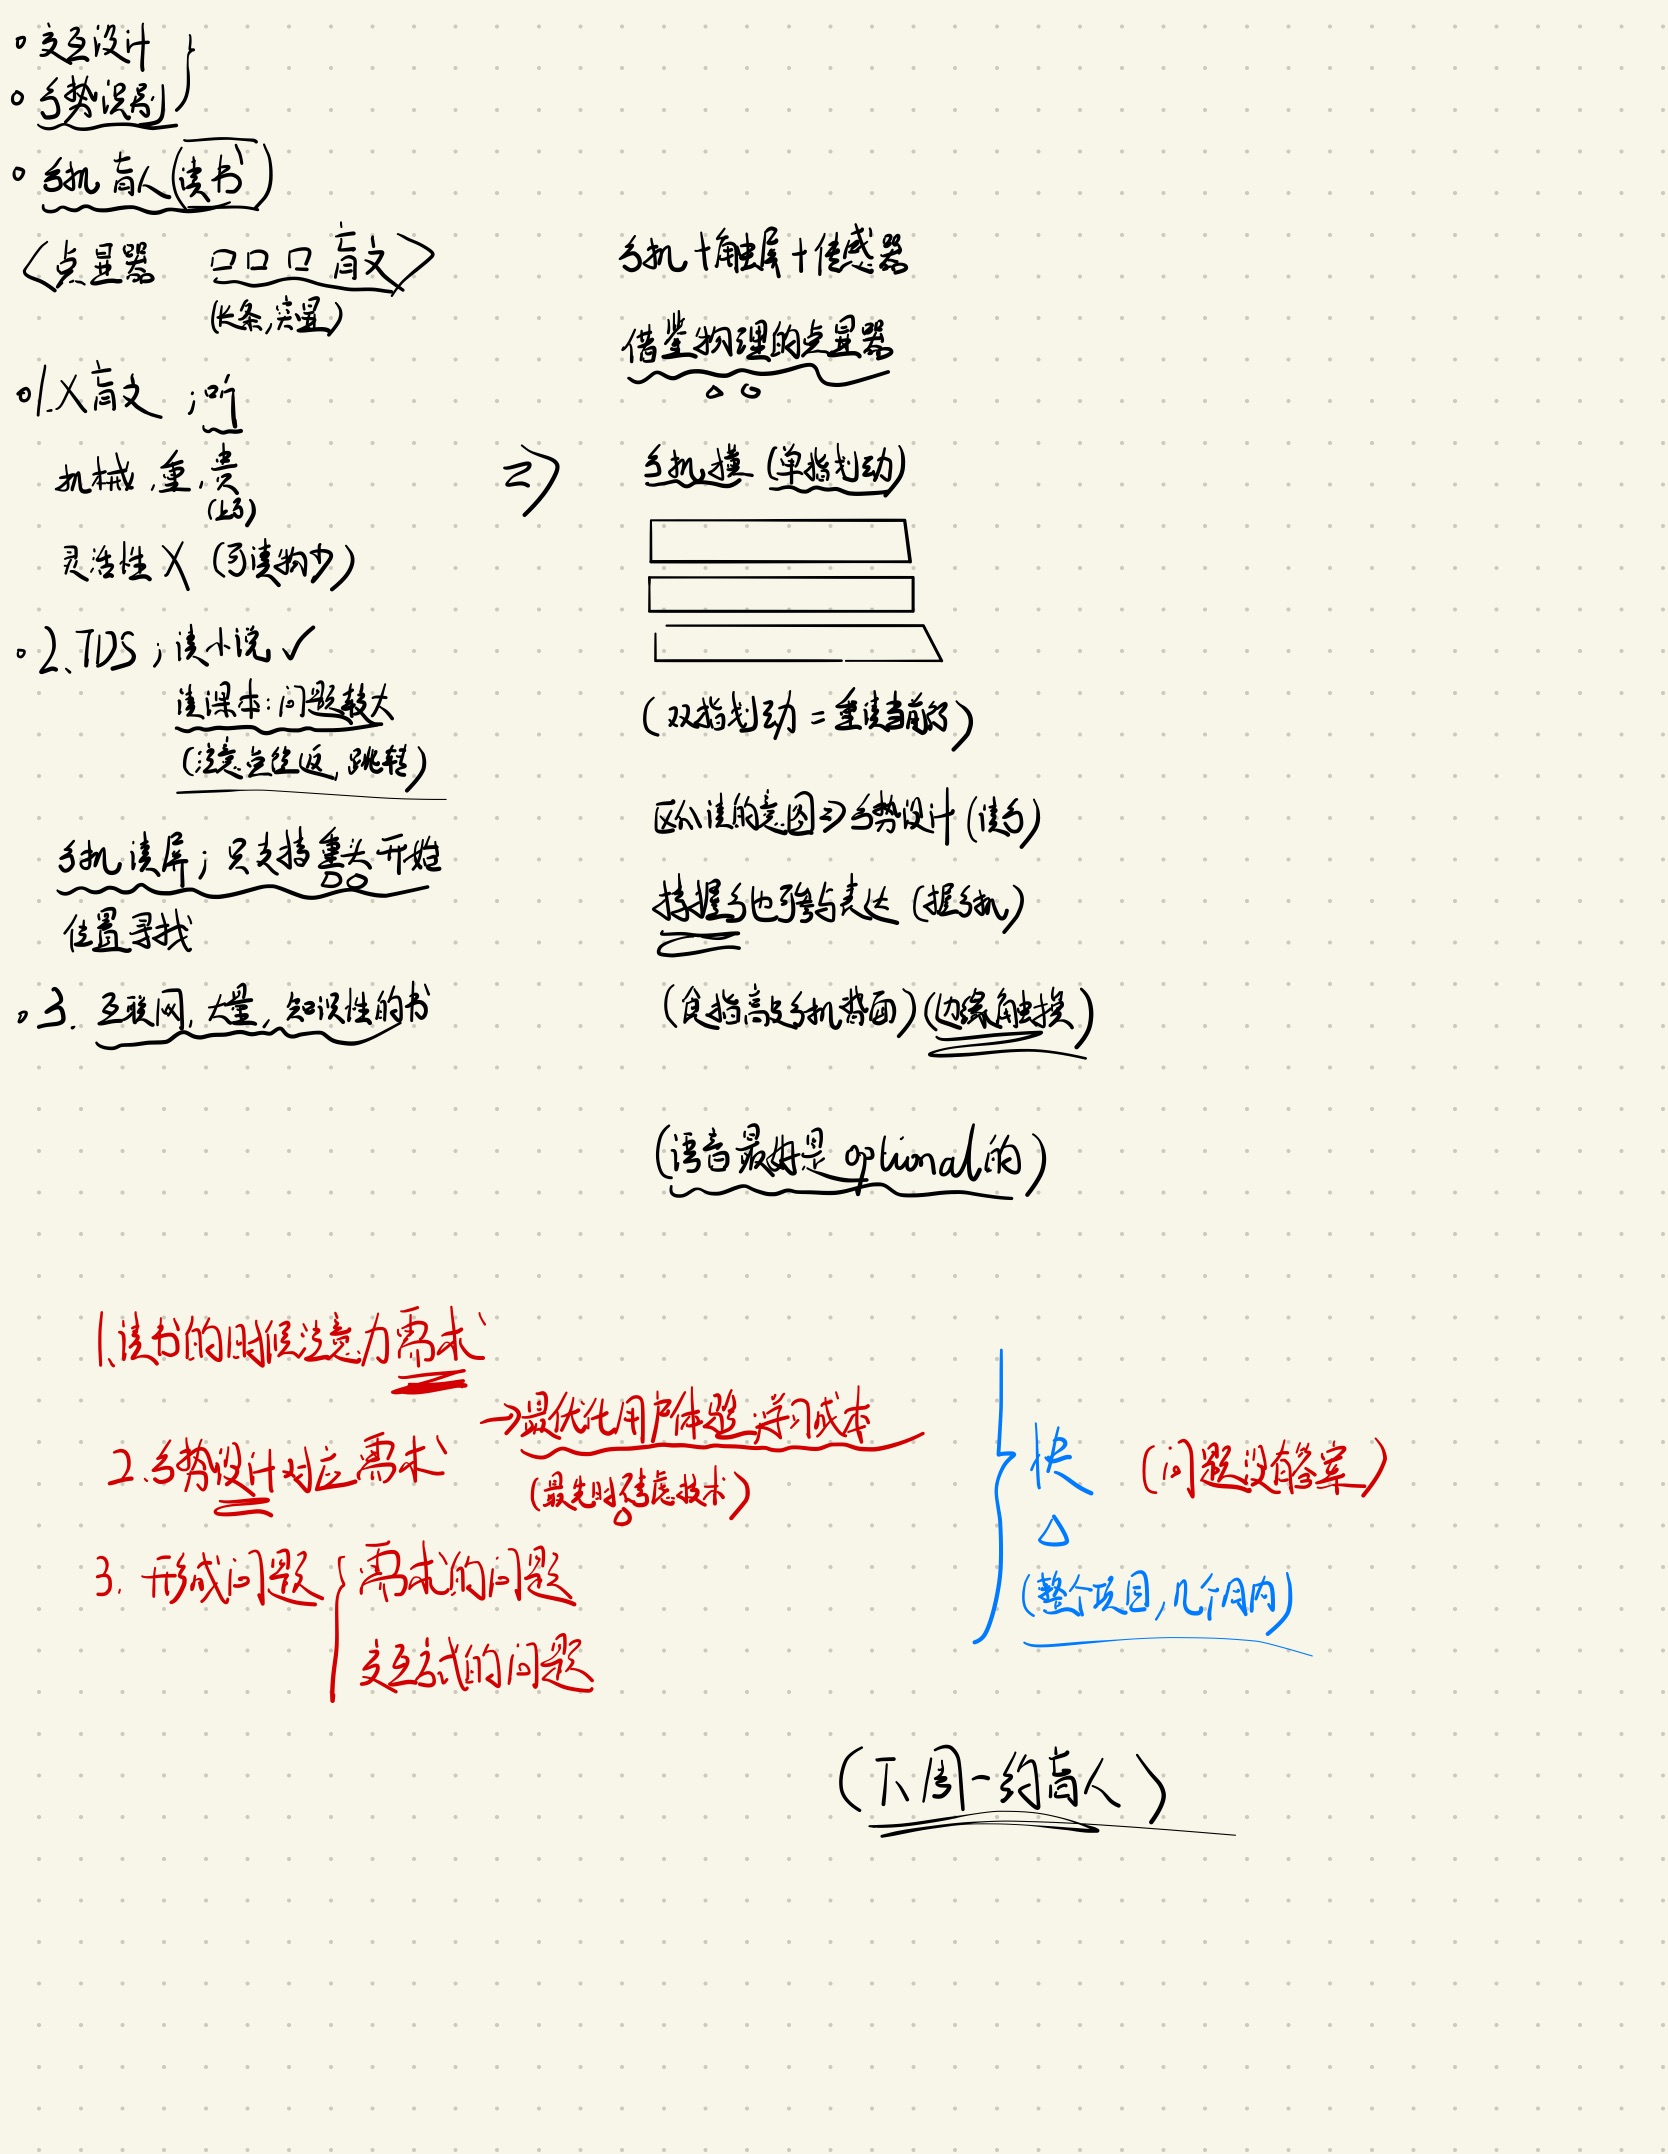 交互设计
手势识别
手机盲人(读书)
<点显器 口口口 盲文>
(长条,实显)
1.X盲文;听
机械,重,贵
(上万)
灵活性X (可读物少)
2.TDS;读小说✓
读课本:问题较大
(注意点往返,跳转)
手机读屏;只支持重头开始
位置寻找
3. 互联网,大量,知识性的书
手机+触屏+传感器
借鉴物理的点显器
=> 手机摸 (单指划动)
(双指划动=重读当前行)
区分读的意图=>手势设计(读手)
持握手也参与表达 (握手机)
(食指离手机背面)(边缘触摸)
(语音最好是optional的)
1.读书的时候注意力需求
2.手势设计对应需求
→最优化用户体验,学习成本
(最先时不考虑技术)
3. 形成问题 { 需求的问题
交互方式的问题
快 (问题没有答案)
△
(整个项目,几个月内)
(下周一约盲人)